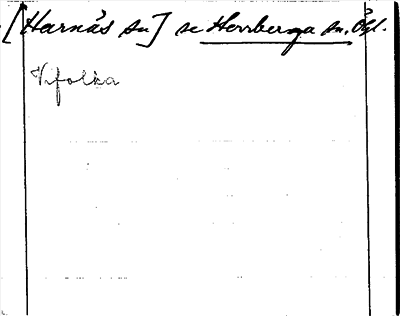 [Harnäs sn] se Herrberga sn. Ögl.
Vifolka